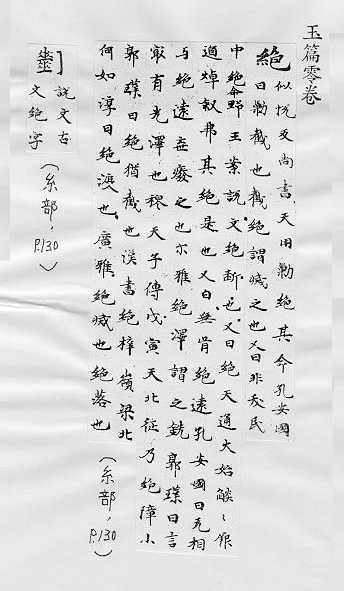 玉篇零卷
絕 似悅反尚書天用勦絕其命孔安國
曰勦截也截絕謂滅之也又曰非友民
中絕命野王案說文絕斷也又曰絕天通大始
過焯叙弗其絕是也又曰無胥絕遠孔安國曰无相
与絕遠棄癈之也尒雅絕澤謂之銑郭璞曰言
冣有光澤也穆天子傳戊寅天北征乃絕漳水
郭璞曰絕猶截也漢書絕梓嶺梁北
何如淳曰絕渡也廣雅絕滅也絕落也
(糸部, P.130)
說文古
文絕字
(糸部, P.130)